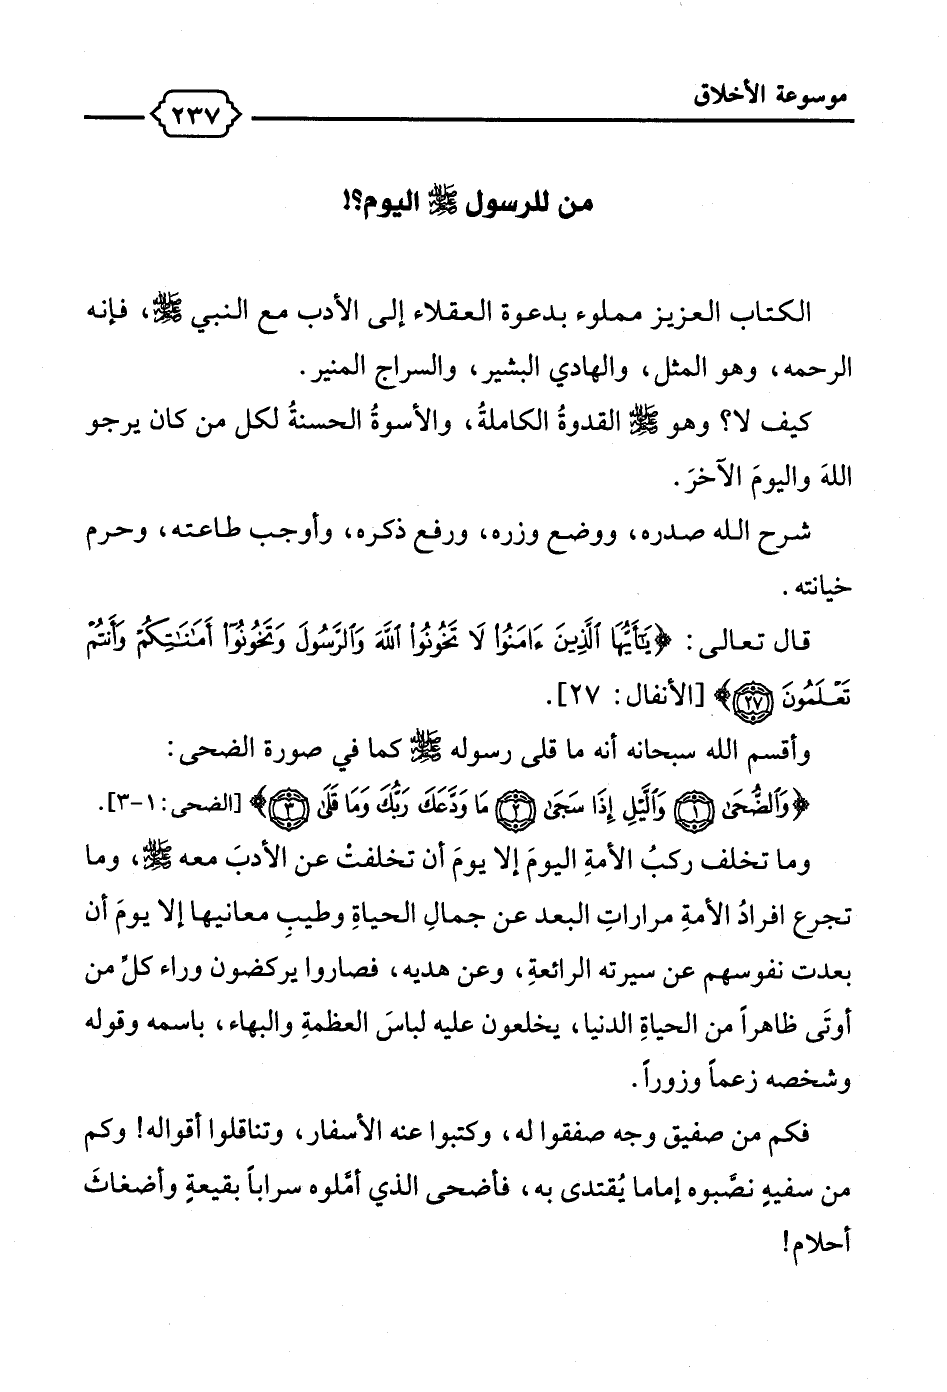 موسوعة الأخلاق
٢٣٧
من للرسول ﷺ اليوم؟!
الكتاب العزيز مملوء بدعوة العقلاء إلى الأدب مع النبي ﷺ، فإنه
الرحمه، وهو المثل، والهادي البشير، والسراج المنير.
كيف لا؟ وهو ﷺ القدوةُ الكاملةُ، والأسوةُ الحسنةُ لكل من كان يرجو
اللهَ واليومَ الآخرَ.
شرح الله صدره، ووضع وزره، ورفع ذكره، وأوجب طاعته، وحرم
خيانته.
قال تعالى: ﴿يَٰٓأَيُّهَا ٱلَّذِينَ ءَامَنُوا۟ لَا تَخُونُوا۟ ٱللَّهَ وَٱلرَّسُولَ وَتَخُونُوٓا۟ أَمَٰنَٰتِكُمْ وَأَنتُمْ
تَعْلَمُونَ ٢٧﴾ [الأنفال: ٢٧].
وأقسم الله سبحانه أنه ما قلى رسوله ﷺ كما في صورة الضحى:
﴿وَٱلضُّحَىٰ ١ وَٱلَّيْلِ إِذَا سَجَىٰ ٢ مَا وَدَّعَكَ رَبُّكَ وَمَا قَلَىٰ ٣﴾ [الضحى: ١-٣].
وما تخلف ركبُ الأمةِ اليومَ إلا يومَ أن تخلفتْ عن الأدبَ معه ﷺ، وما
تجرع افرادُ الأمةِ مراراتِ البعد عن جمالِ الحياةِ وطيبِ معانيها إلا يومَ أن
بعدت نفوسهم عن سيرته الرائعةِ، وعن هديه، فصاروا يركضون وراء كلِّ من
أوتَى ظاهراً من الحياةِ الدنيا، يخلعون عليه لباسَ العظمةِ والبهاء، باسمه وقوله
وشخصه زعماً وزوراً.
فكم من صفيق وجه صفقوا له، وكتبوا عنه الأسفار، وتناقلوا أقواله! وكم
من سفيهٍ نصَّبوه إماما يُقتدى به، فأضحى الذي أمَّلوه سراباً بقيعةٍ وأضغاثَ
أحلام!